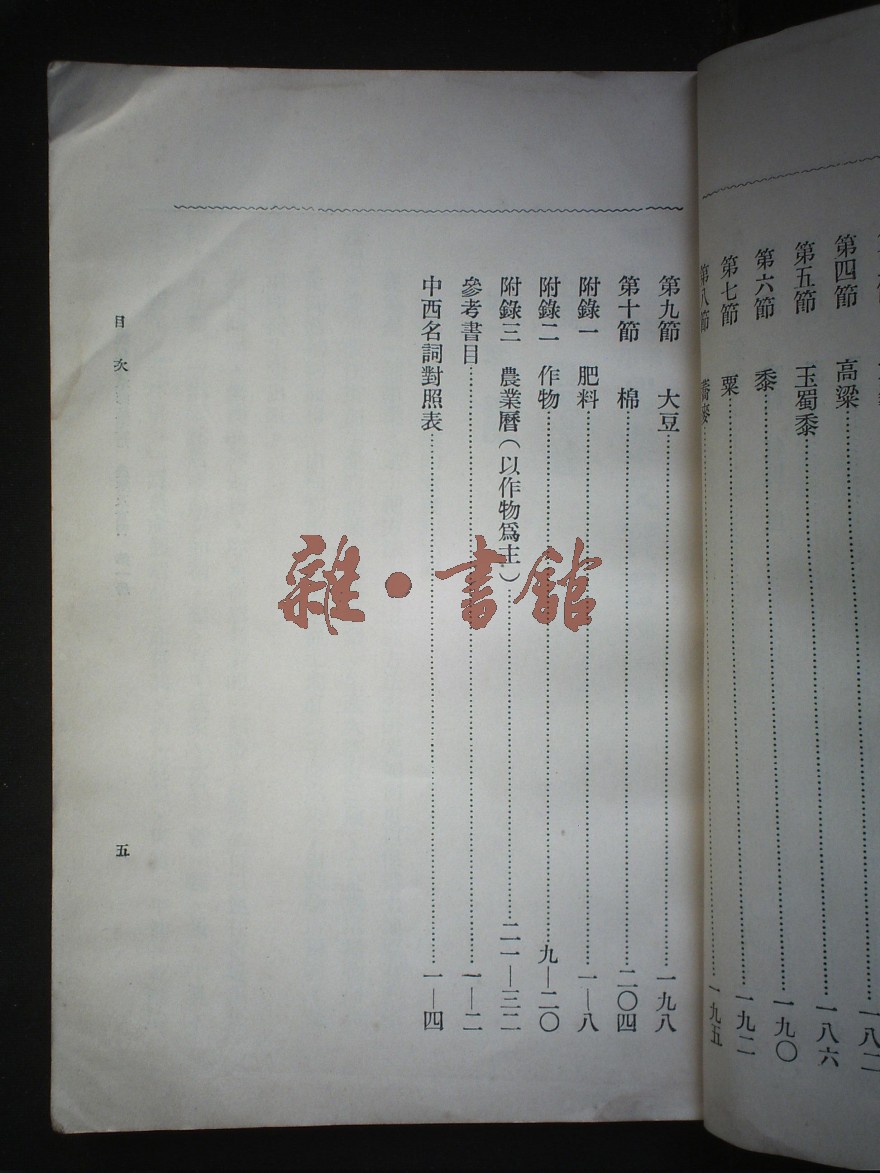 第四節 高粱 一八六
第五節 玉蜀黍
第六節 黍 一九〇
第七節 粟 一九二
第八節 蕎麥 一九五
第九節 大豆 一九八
第十節 棉 二〇四
附錄一 肥料 一—八
附錄二 作物 九—二〇
附錄三 農業曆(以作物爲主) 二一—三二
參考書目 一—二
中西名詞對照表 一—四
目次
五
雜·書館